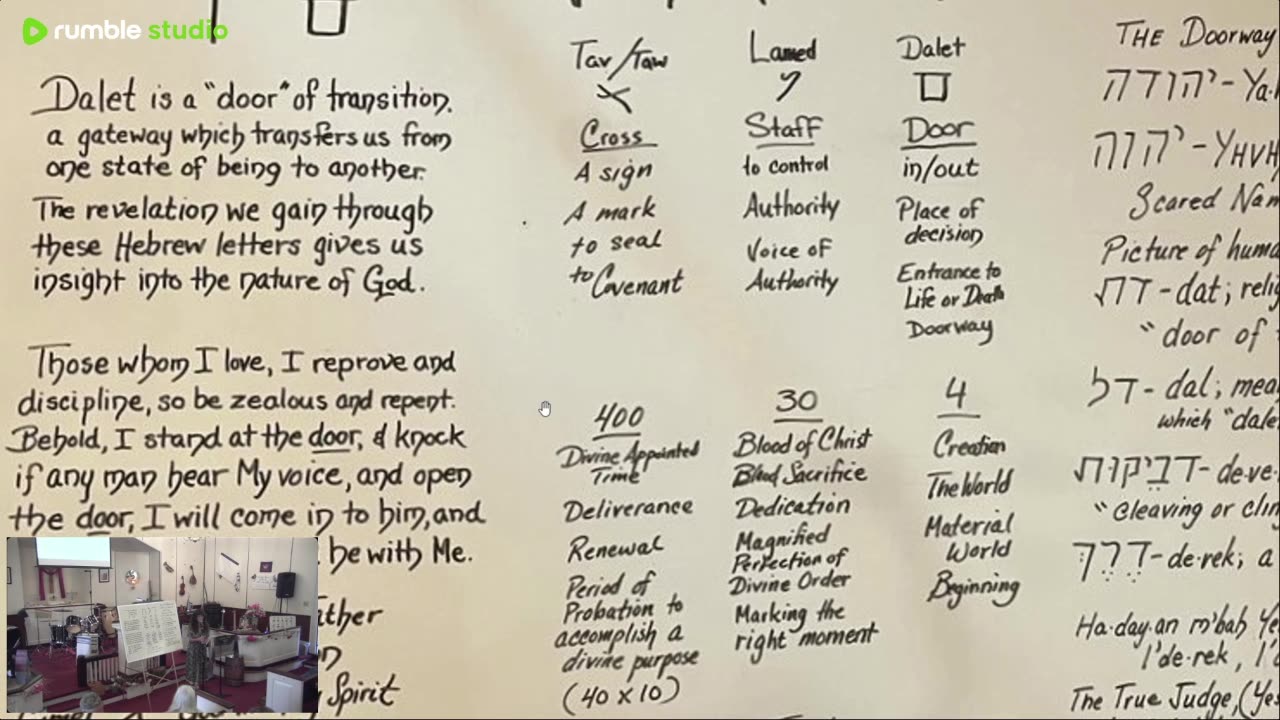 rumble studio
Dalet is a "door" of transition.
a gateway which transfers us from
one state of being to another.
The revelation we gain through
these Hebrew letters gives us
insight into the nature of God.
Those whom I love, I reprove and
discipline, so be zealous and repent.
Behold, I stand at the door, & knock
if any man hear My voice, and open
the door, I will come in to him, and
he with Me.
Spirit
Tav/Taw
Cross
A sign
A mark
to seal
to Covenant
400
Divine Appointed
Time
Deliverance
Renewal
Period of
Probation to
accomplish a
divine purpose
(40 x 10)
Lamed
Staff
to control
Authority
Voice of
Authority
30
Blood of Christ
Blood Sacrifice
Dedication
Magnified
Perfection of
Divine Order
Marking the
right moment
Dalet
Door
in/out
Place of
decision
Entrance to
Life or Death
Doorway
4
Creation
The World
Material
World
Beginning
THE Doorway
יהודה - Ya
יהוה - YHVH
Scared Nam
Picture of huma
דת - dat; relig
"door of
דל - dal; mea
which "dale
דביקות - de-ve
"cleaving or clin
דרך - de-rek; a
Ha-day-an m'bah Ye
l'de-rek, l'
The True Judge, (Yes